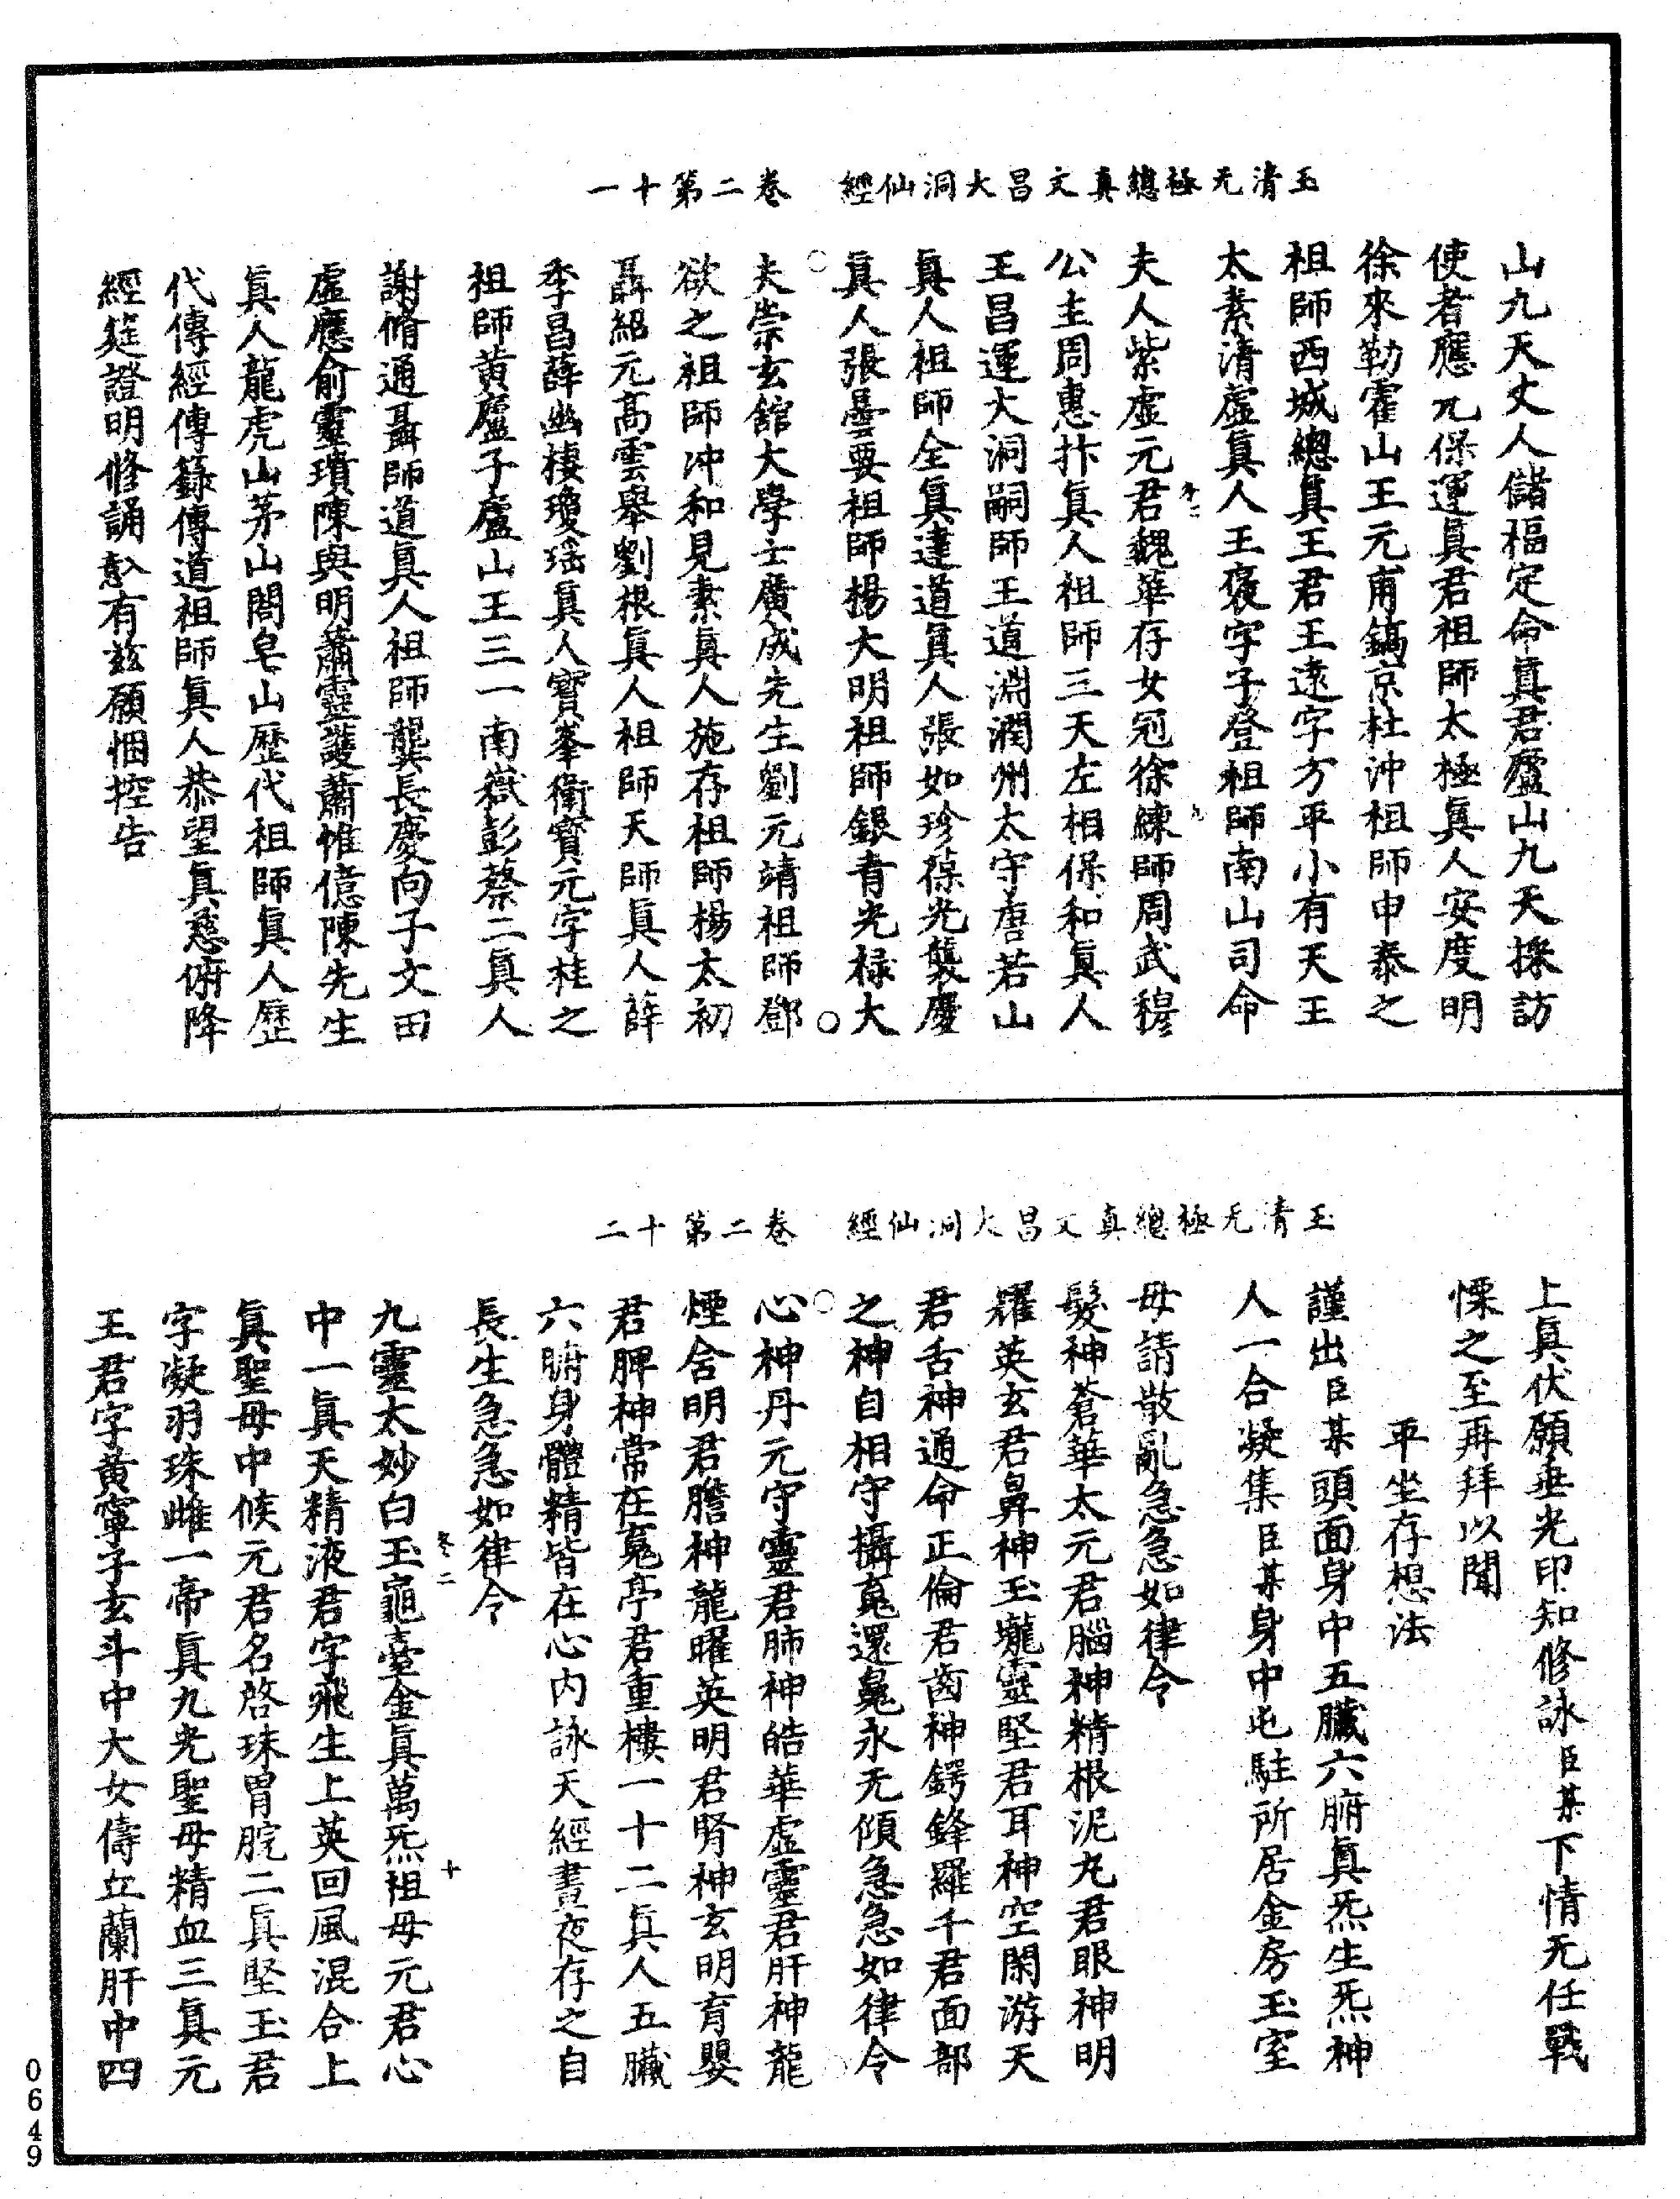 玉清无極總真文昌大洞仙經　卷二第十一
山九天丈人儲福定命眞君廬山九天採訪
使者應元保運眞君祖師太極眞人安度明
徐來勒霍山王元甫鎬京杜沖祖師申泰之
祖師西城總眞王君王遠字方平小有天王
太素清虛眞人王褒字子登祖師南山司命
夫人紫虛元君魏華存女冠徐練師周武穆
公主周惠抃眞人祖師三天左相保和眞人
王昌運大洞嗣師王道淵潤州太守唐若山
眞人祖師全眞達道眞人張如珍葆光襲慶
眞人張曇要祖師楊大明祖師銀青光祿大
夫崇玄舘大學士廣成先生劉元靖祖師鄧
欲之祖師冲和見素眞人施存祖師楊太初
聶紹元高雲舉劉根眞人祖師天師眞人薛
季昌薛幽棲瓊瑶眞人寶峯衛寶元字桂之
祖師黃廬子廬山王三一南嶽彭蔡二眞人
謝脩通聶師道眞人祖師龔長慶向子文田
虛應俞靈璝陳與明蕭靈護蕭惟億陳先生
眞人龍虎山茅山閤皂山歷代祖師眞人歷
代傳經傳籙傳道祖師眞人恭望眞慈俯降
經筵證明修誦欵有兹願悃控告
玉清无極總真文昌大洞仙經　卷二第十二
上眞伏願垂光印知修詠臣某下情无任戰
慄之至再拜以聞
平坐存想法
謹出臣某頭面身中五臟六腑眞炁生炁神
人一合凝集臣某身中屯駐所居金房玉室
毋請散亂急急如律令
髮神蒼華太元君腦神精根泥丸君眼神明
耀英玄君鼻神玉壠靈堅君耳神空閑游天
君舌神通命正倫君齒神鍔鋒羅千君面部
之神自相守攝䰟還䰟永无傾急急如律令
心神丹元守靈君肺神皓華虛靈君肝神龍
煙含明君膽神龍曜英明君腎神玄明育嬰
君脾神常在䰟亭君重樓一十二眞人五臟
六腑身體精皆在心內詠天經晝夜存之自
長生急急如律令
九靈太妙白玉龜臺金眞萬炁祖母元君心
中一眞天精液君字飛生上英回風混合上
眞聖母中候元君名啓珠胃脘二眞堅玉君
字凝羽珠雌一帝眞九光聖母精血三眞元
王君字黃寧子玄斗中大女儔丘蘭肝中四
卷二
九
卷二
十
0649